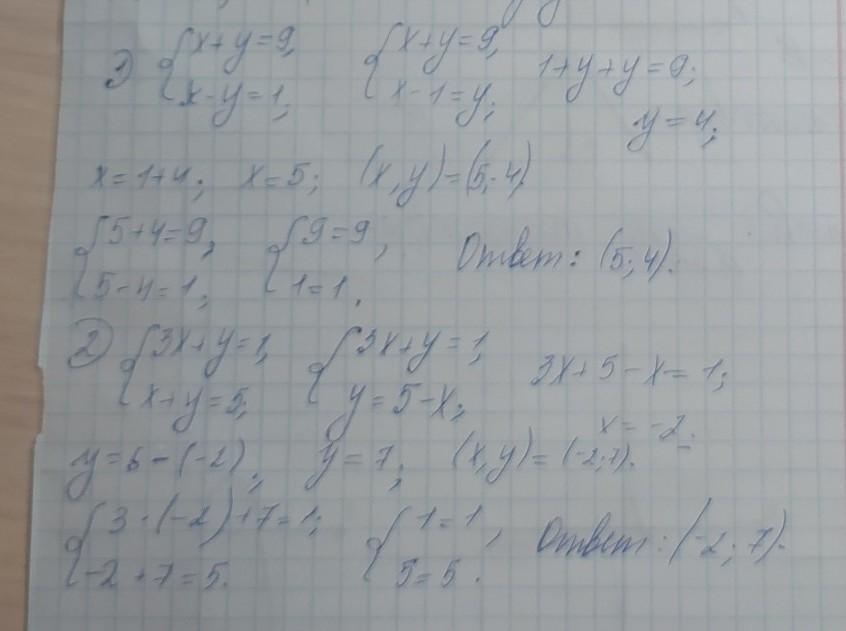 1) { x+y=9, x-y=1; { x+y=9, x-1=y; 1+y+y=9;
y=4;
x=1+4; x=5; (x,y)=(5;4).
{ 5+4=9, 5-4=1; { 9=9, 1=1. Ответ: (5;4).
2) { 3x+y=1, x+y=5; { 3x+y=1, y=5-x; 3x+5-x=1;
x=-2;
y=5-(-2); y=7; (x,y)=(-2;7).
{ 3·(-2)+7=1; -2+7=5. { 1=1, 5=5. Ответ: (-2;7).